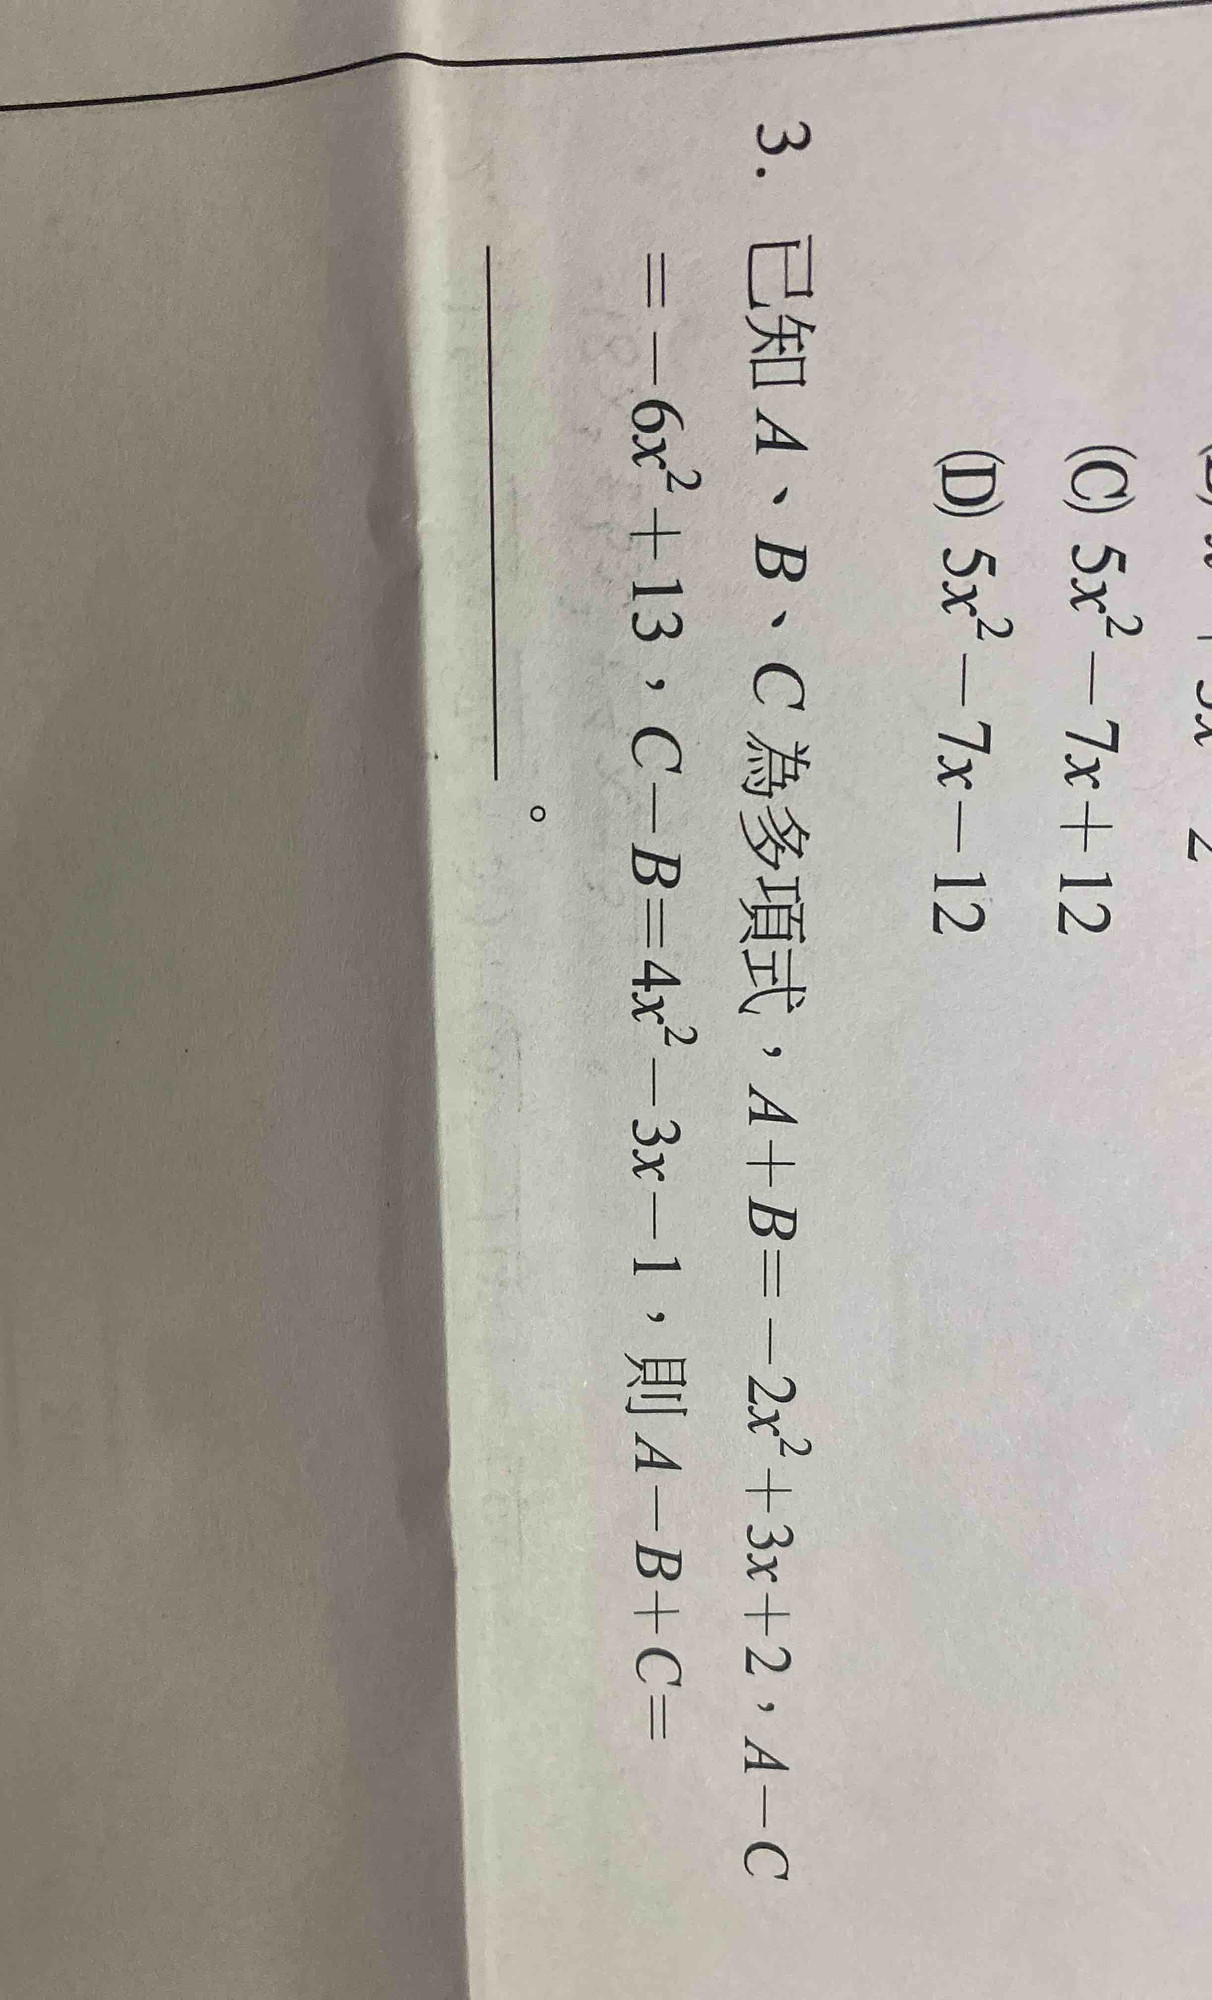 (C) 5x²－7x＋12
(D) 5x²－7x－12
3. 已知 A、B、C 為多項式，A＋B＝－2x²＋3x＋2，A－C
＝－6x²＋13，C－B＝4x²－3x－1，則 A－B＋C＝
。